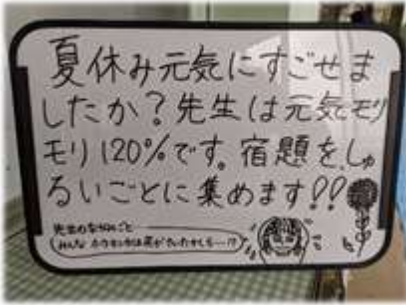 夏休み元気にすごせま
したか？先生は元気モリ
モリ120%です。宿題を、しゅ
るいごとに集めます!!
先生の
みんな